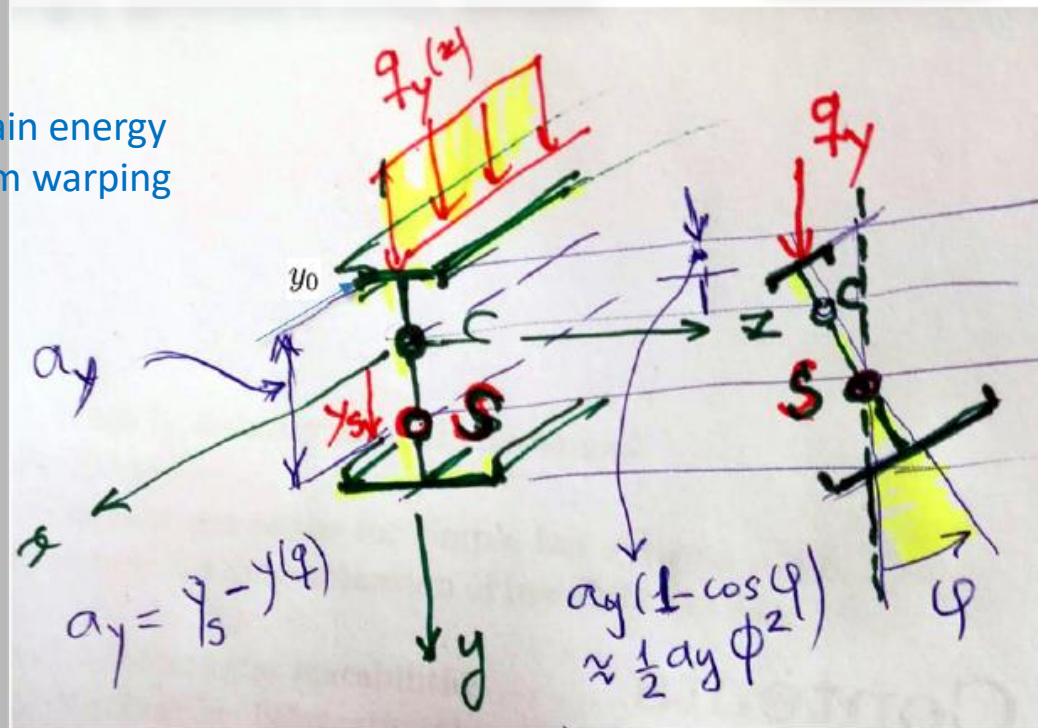 ain energy
m warping
q_y(x)
q_y
y₀
a_y
C
z
C
y_s
S
S
x
a_y = y_s - y(q)
y
a_y(1-cosφ)
≈ ½ a_y ϕ²
φ